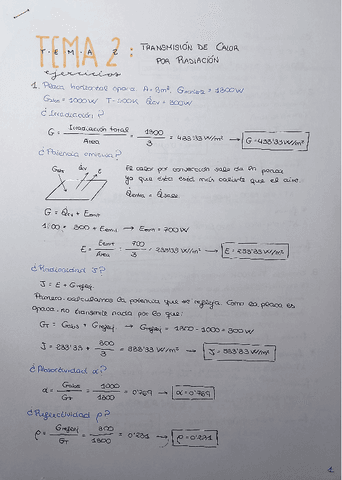 TEMA 2
TEMA 2: TRANSMISIÓN DE CALOR
POR RADIACIÓN
ejercicios
1. Placa horizontal opaca. A=3m², = 1300W
Gabs = 1000W T = 500K = 300W
¿Irradiación?
G = Irradiación total / Area = 1300 / 3 = 433'33 W/m² → G = 433'33 W/m²
¿Potencia emisiva?
El calor por convección sale de la placa
ya que esta está más caliente que el aire.
G = + Eemit
1300 = 300 + Eemi → Eemi = 700 W
E = Eemit / Area = 700 / 3 = 233'33 W/m² → E = 233'33 W/m²
¿Radiosidad J?
J = E + Grefej
Primero calculamos la potencia que se refleja. Como la placa es
opaca no transmite nada por lo que:
GT = Gabs + Grefej → Grefej = 1300 - 1000 = 300 W
J = 233'33 + 300 / 3 = 333'33 W/m² → J = 333'33 W/m²
¿Absortividad α?
α = Gabs / GT = 1000 / 1300 = 0'769 → α = 0'769
¿Reflectividad ρ?
ρ = Grefej / GT = 300 / 1300 = 0'231 → ρ = 0'231
1